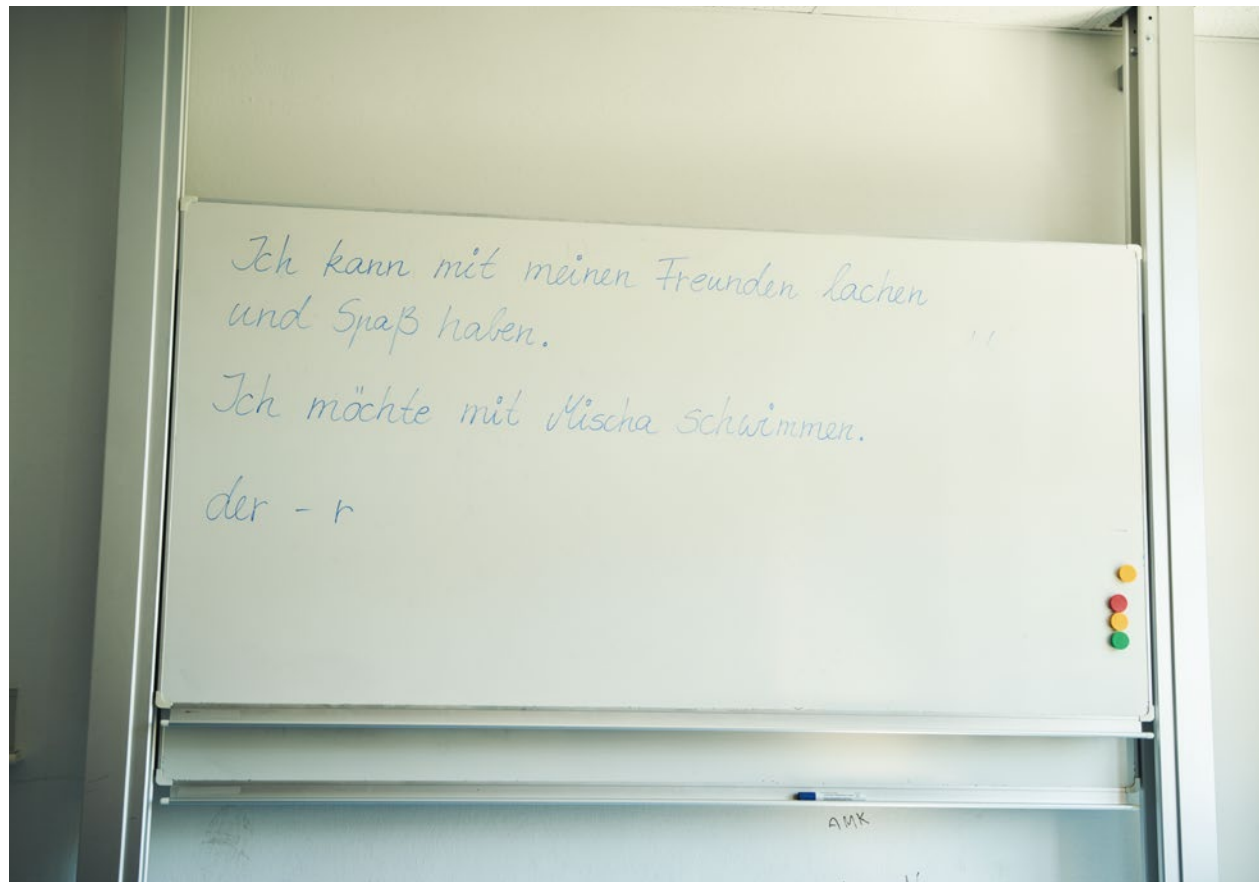 Ich kann mit meinen Freunden lachen
und Spaß haben.
Ich möchte mit Mischa schwimmen.
der - r
AMK